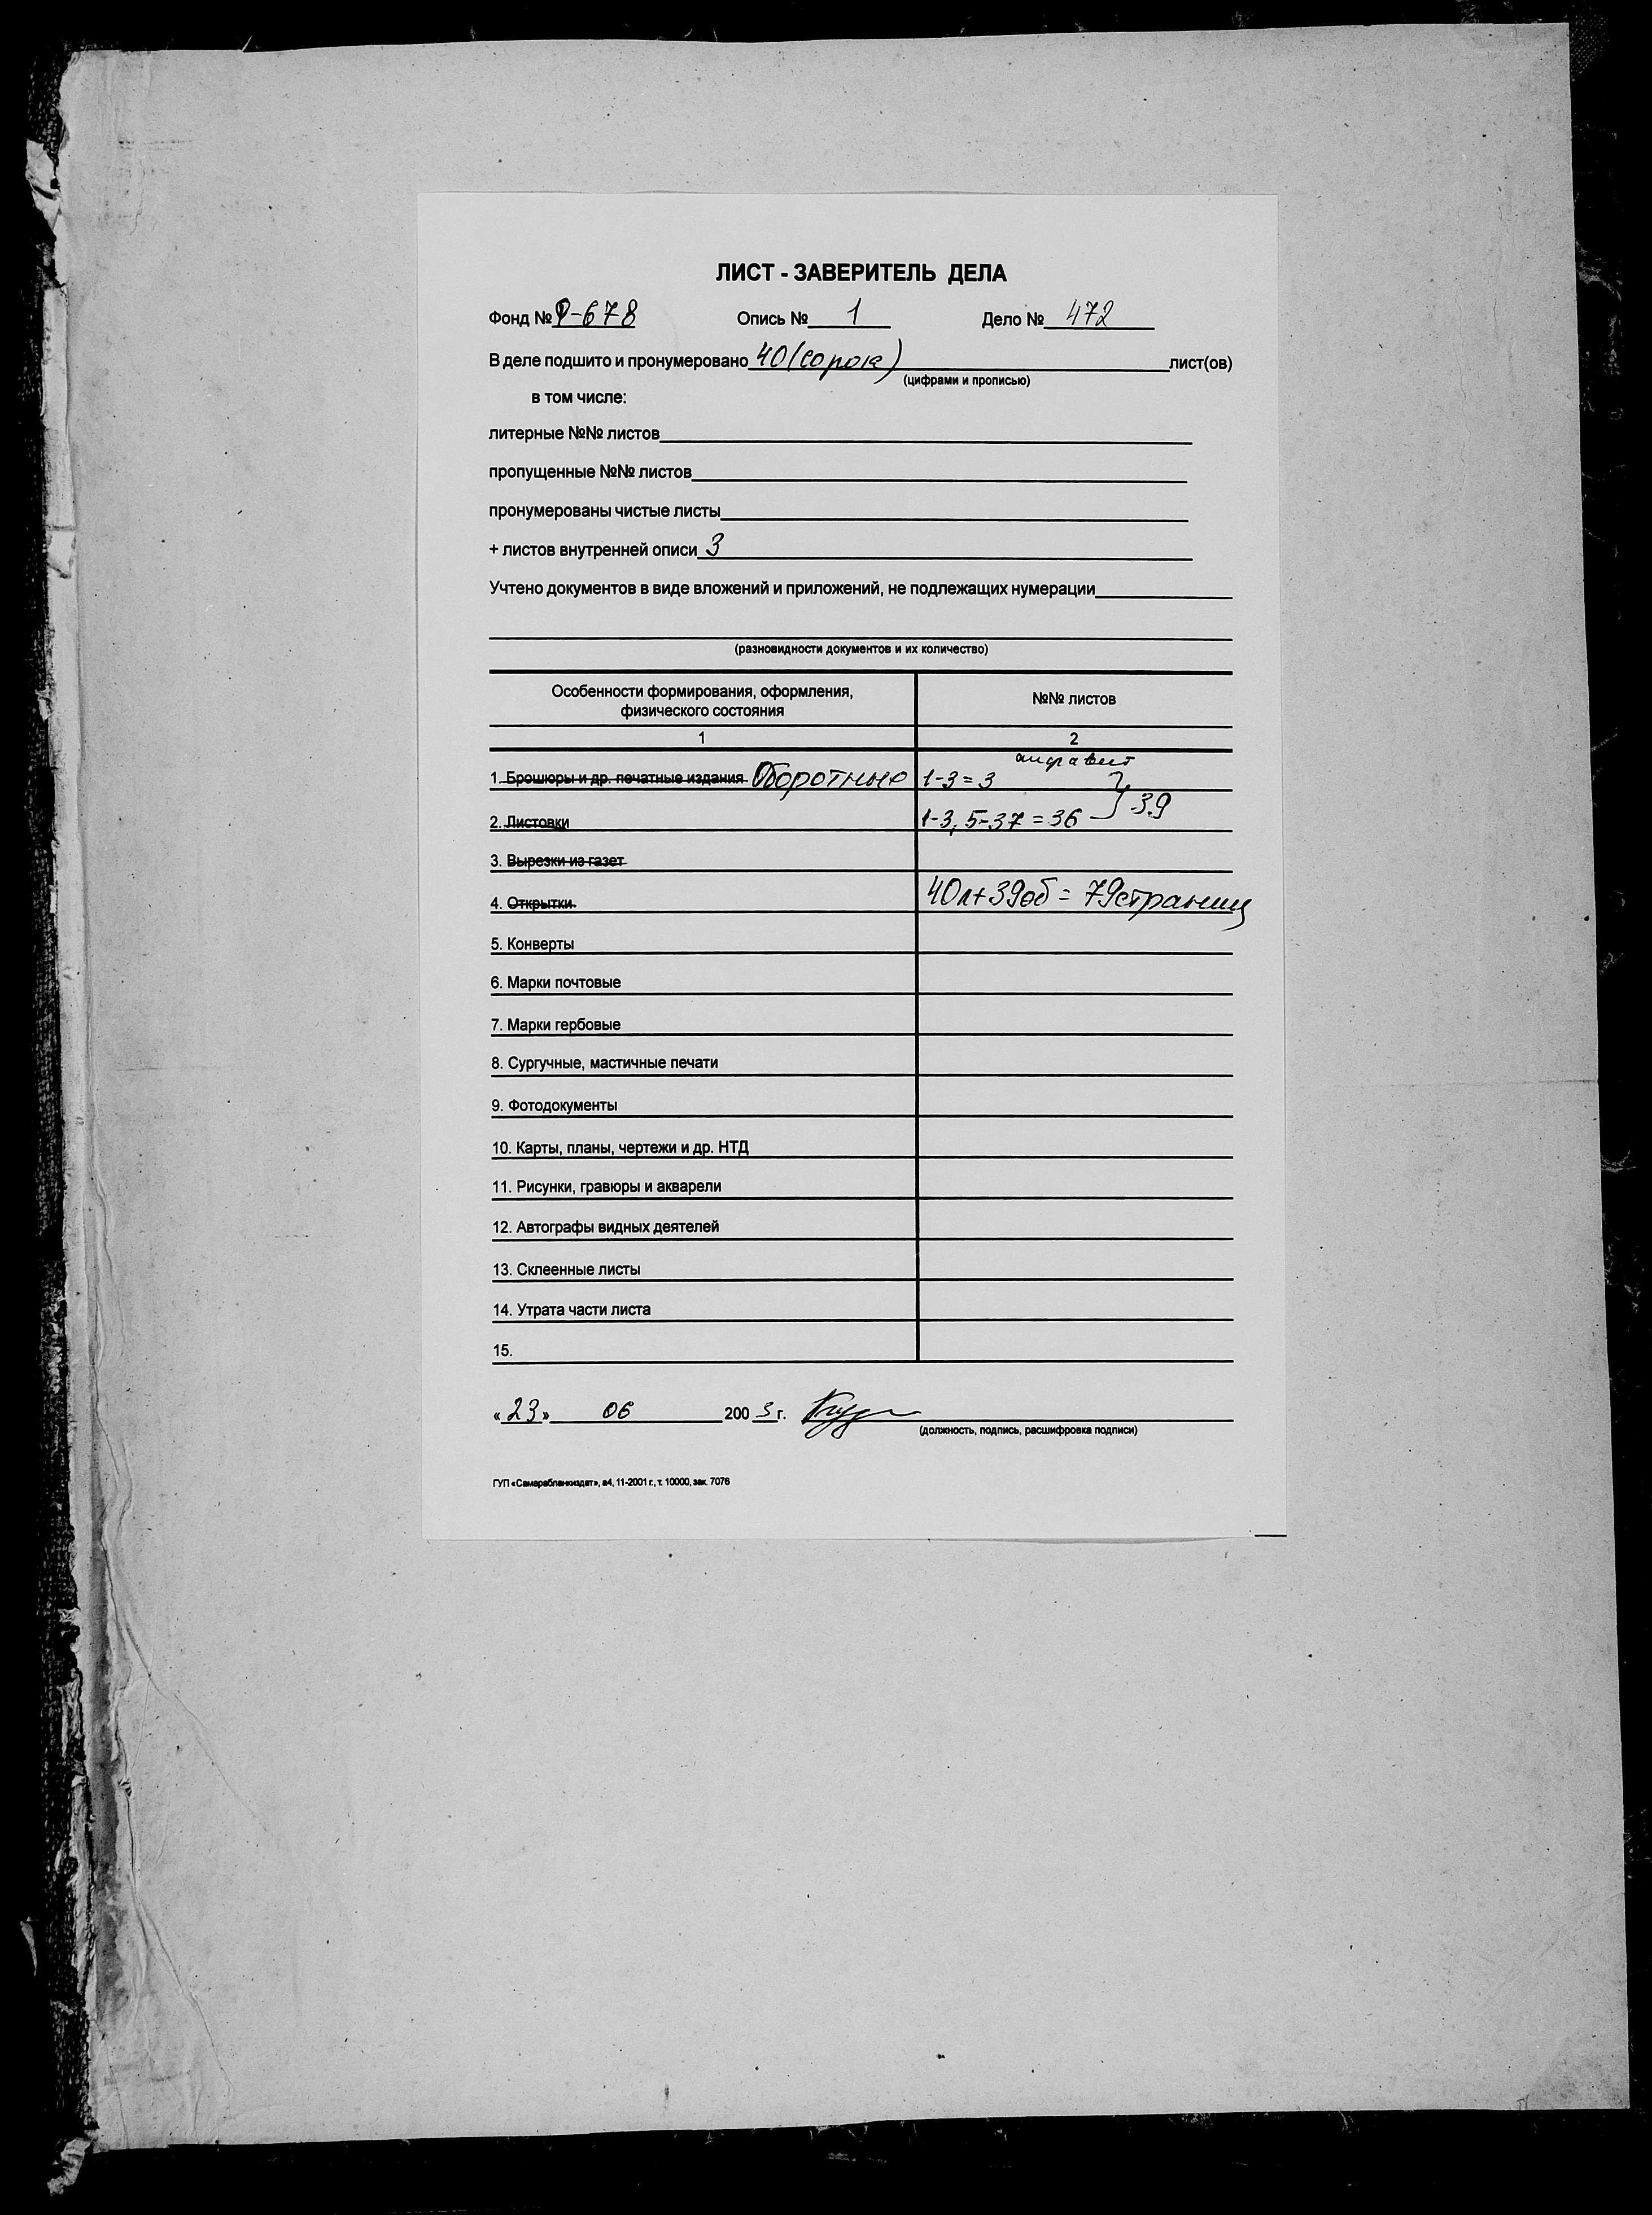 ЛИСТ - ЗАВЕРИТЕЛЬ ДЕЛА
Фонд № Р-678 Опись № 1 Дело № 472
В деле подшито и пронумеровано 40 (сорок) лист(ов)
(цифрами и прописью)
в том числе:
литерные №№ листов
пропущенные №№ листов
пронумерованы чистые листы
+ листов внутренней описи 3
Учтено документов в виде вложений и приложений, не подлежащих нумерации
(разновидности документов и их количество)
Особенности формирования, оформления, №№ листов
физического состояния
1 2
алфавит
1. Брошюры и др. печатные издания Оборотные 1-3 = 3
2. Листовки 1-3, 5-37 = 36 } 39
3. Вырезки из газет
4. Открытки 40л + 39об = 79 страниц
5. Конверты
6. Марки почтовые
7. Марки гербовые
8. Сургучные, мастичные печати
9. Фотодокументы
10. Карты, планы, чертежи и др. НТД
11. Рисунки, гравюры и акварели
12. Автографы видных деятелей
13. Склеенные листы
14. Утрата части листа
15.
«23» 06 2003 г.
(должность, подпись, расшифровка подписи)
ГУП «Самарабланкиздат», а4, 11-2001 г., т. 10000, зак. 7076